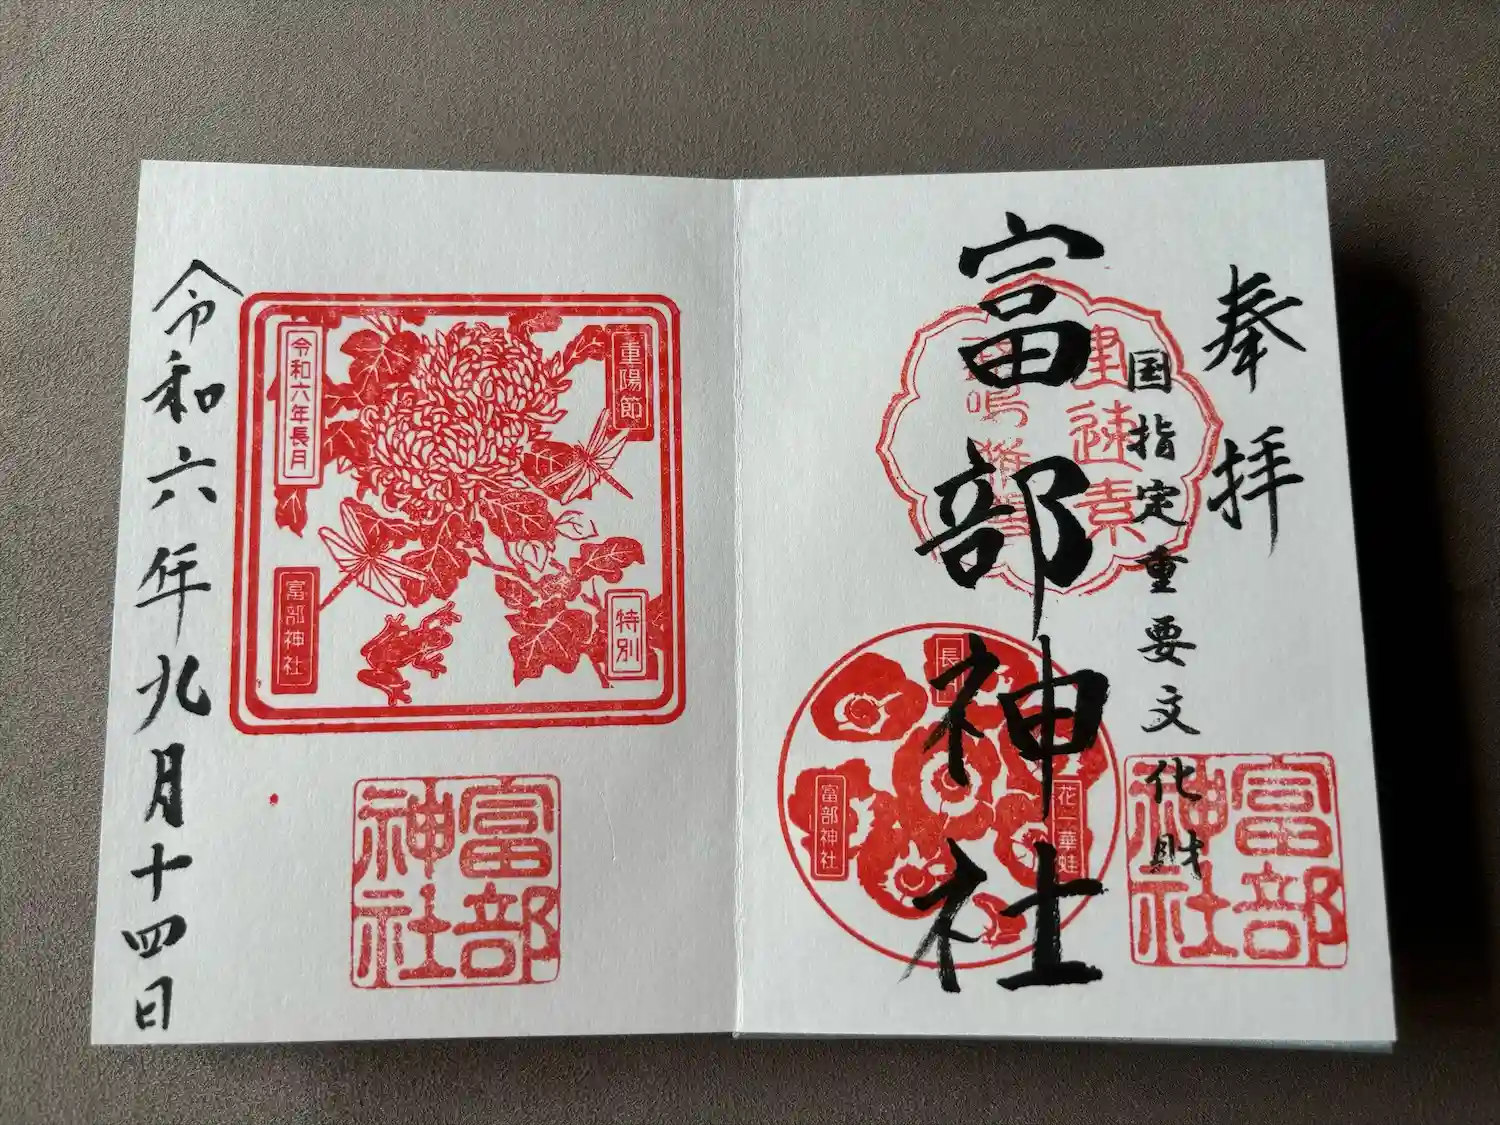 奉拝
国指定重要文化財
富部神社
建速素
富部神社
富部神社
令和六年九月十四日
重陽節
令和六年長月
特別
富部神社
富部神社